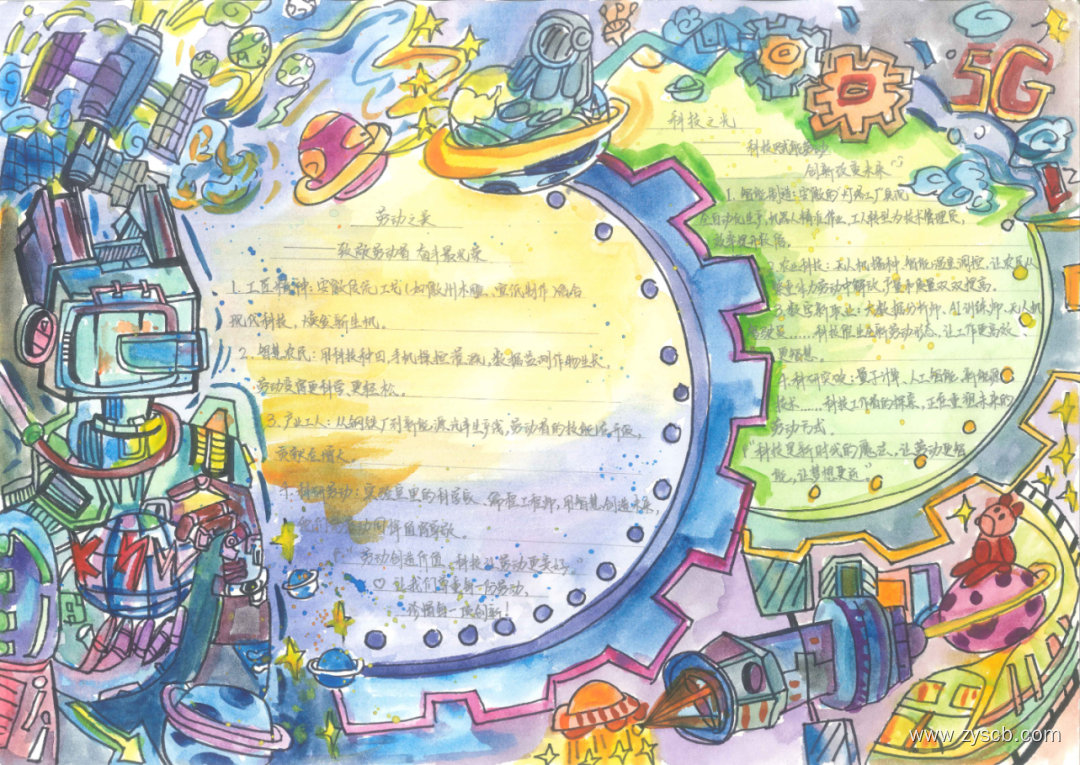 劳动之美
——致敬劳动者 奋斗最光荣
1. 工匠精神：安徽传统工艺（如徽州木雕、宣纸制作）融合
现代科技，焕发新生机。
2. 智慧农民：用科技种田，手机操控灌溉，数据监测作物生长，
劳动变得更科学、更轻松。
3. 产业工人：从钢铁厂到新能源汽车生产线，劳动者的技能在升级，
贡献在增大。
4. 科研劳动：实验室里的科学家、编程工程师，用智慧创造未来，
他们的劳动同样值得尊敬。
“劳动创造价值，科技让劳动更美好。”
♡ 让我们尊重每一份劳动，
珍惜每一项创新！
科技之光
——科技赋能劳动
创新改变未来
1. 智能制造：安徽的“灯塔工厂”实现
全自动化生产，机器人精准作业，工人转型为技术管理员，
效率提升数倍。
2. 农业科技：无人机播种、智能温室调控，让农民从
繁重体力劳动中解放，产量和质量双双提高。
3. 数字新职业：大数据分析师、AI训练师、无人机
驾驶员……科技催生全新劳动形态，让工作更高效、
更智慧。
4. 科研突破：量子计算、人工智能、新能源
技术……科技工作者的探索，正在重塑未来的
劳动方式。
“科技是新时代的魔法，让劳动更智
能，让梦想更近”
5G
www.zyscb.com